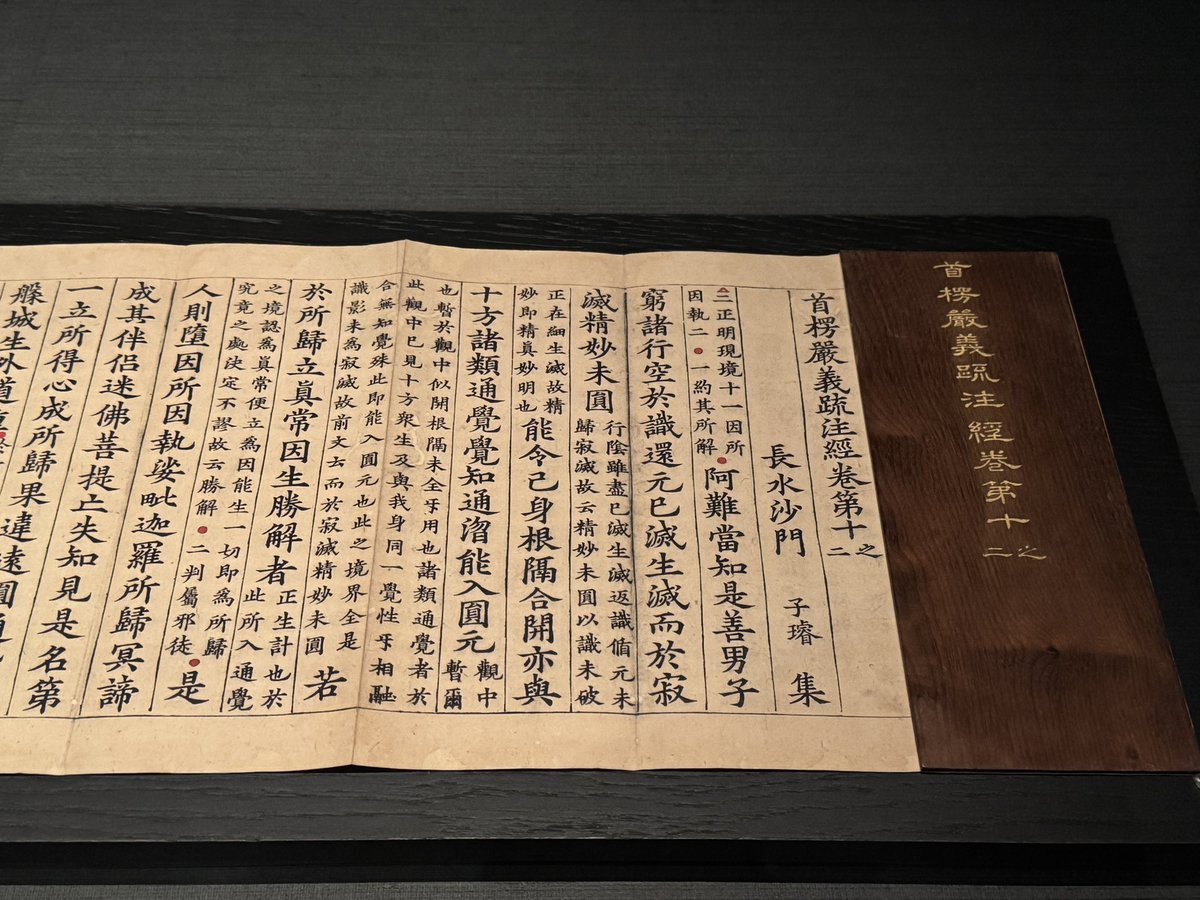 首楞嚴義疏注經卷第十之二
首楞嚴義疏注經卷第十之二
長水沙門 子璿 集
三正明現境十一因所
因執二 一約其所解
阿難當知是善男子
窮諸行空於識還元已滅生滅而於寂
滅精妙未圓
行陰雖盡已滅生滅返識循元未
歸寂滅故云精妙未圓以識未破
正在細生滅故精
妙即精眞妙明也
能令己身根隔合開亦與
十方諸類通覺覺知通㳷能入圓元
觀中
暫爾
也暫於觀中似開根隔未全互用也諸類通覺者於
此觀中已見十方衆生及與我身同一覺性互相融
合無知覺殊此即能入圓元也此之境界全是
識影未爲寂滅故前文云而於寂滅精妙未圓
若
於所歸立眞常因生勝解者
正生計也於
此所入通覺
之境認爲眞常便立爲因能生一切即爲所歸
究竟之處決定不謬故云勝解 二判屬邪徒
是
人則墮因所因執娑毗迦羅所歸冥諦
成其伴侶迷佛菩提亡失知見是名第
一立所得心成所歸果違遠圓通
躶城生外道